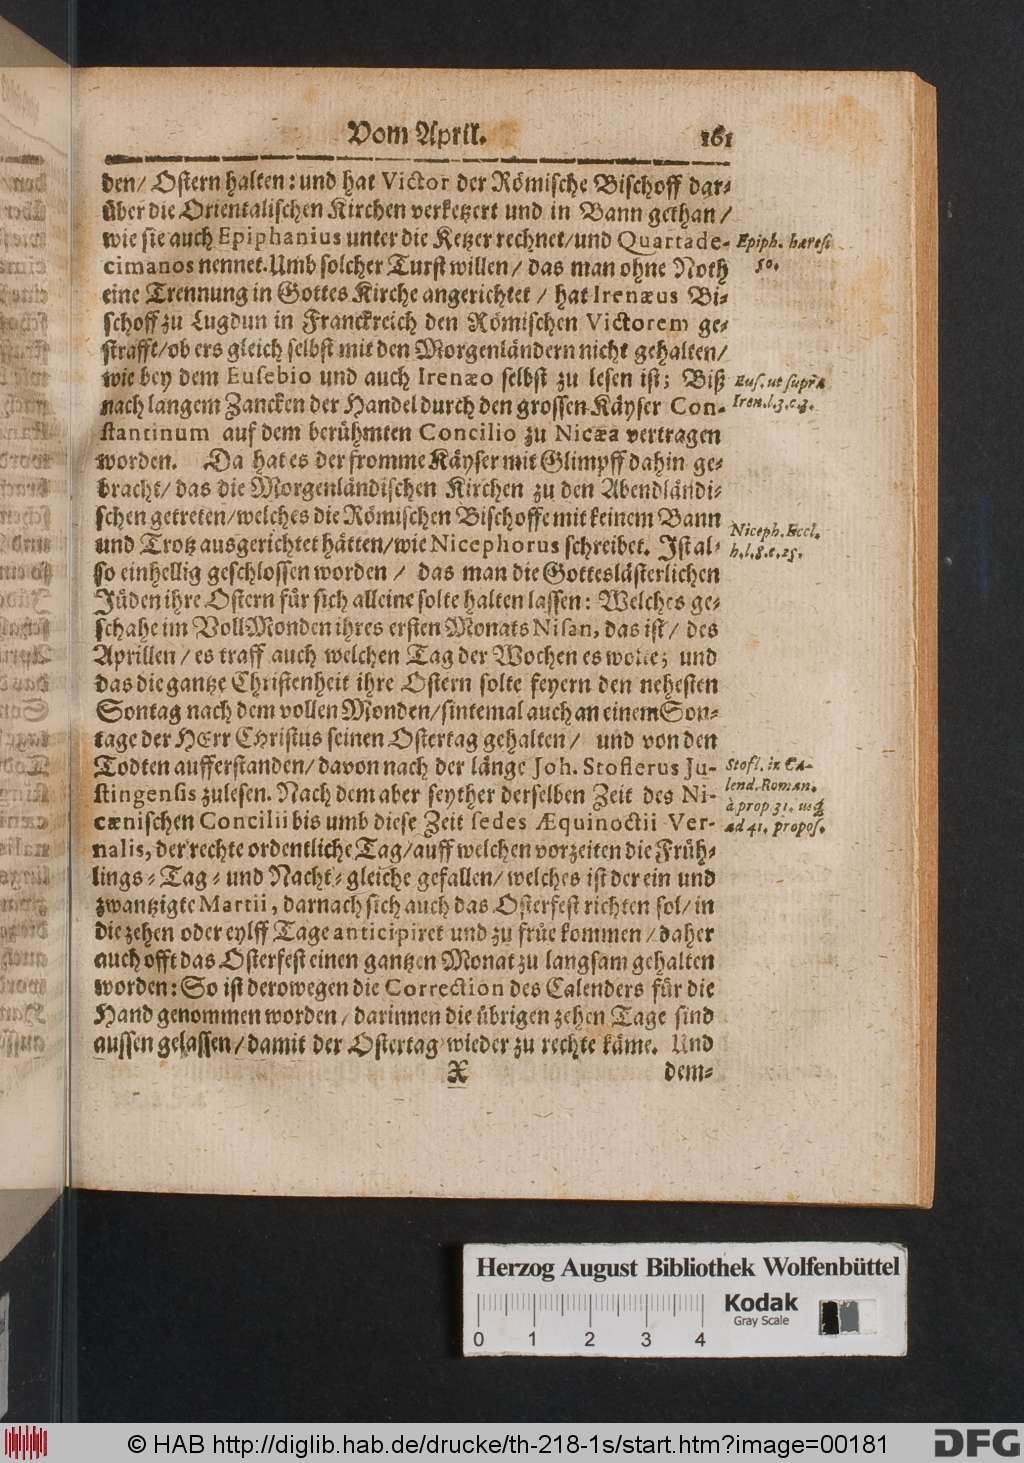 Vom April. 161
den/ Ostern halten: und hat Victor der Römische Bischoff dar-
über die Orientalischen Kirchen verketzert und in Bann gethan/
wie sie auch Epiphanius unter die Ketzer rechnet/und Quartade-
cimanos nennet. Umb solcher Turst willen/ das man ohne Noth
eine Trennung in Gottes Kirche angerichtet/ hat Irenæus Bi-
schoff zu Lugdun in Franckreich den Römischen Victorem ge-
strafft/ob ers gleich selbst mit den Morgenländern nicht gehalten/
wie bey dem Eusebio und auch Irenæo selbst zu lesen ist; Biß
nach langem Zancken der Handel durch den grossen Käyser Con-
stantinum auf dem berühmten Concilio zu Nicæa vertragen
worden. Da hat es der fromme Käyser mit Glimpff dahin ge-
bracht/ das die Morgenländischen Kirchen zu den Abendländi-
schen getreten/welches die Römischen Bischoffe mit keinem Bann
und Trotz ausgerichtet hätten/wie Nicephorus schreibet. Ist al-
so einhellig geschlossen worden/ das man die Gotteslästerlichen
Jüden ihre Ostern für sich alleine solte halten lassen: Welches ge-
schahe im VollMonden ihres ersten Monats Nisan, das ist/ des
Aprillen/ es traff auch welchen Tag der Wochen es wolte; und
das die gantze Christenheit ihre Ostern solte feyern den nehesten
Sontag nach dem vollen Monden/sintemal auch an einem Son-
tage der HErr CHristus seinen Ostertag gehalten/ und von den
Todten aufferstanden/davon nach der länge Joh. Stoflerus Ju-
stingensis zulesen. Nach dem aber seyther derselben Zeit des Ni-
cænischen Concilii bis umb diese Zeit sedes Æquinoctii Ver-
nalis, der rechte ordentliche Tag/auff welchen vorzeiten die Früh-
lings-Tag- und Nacht-gleiche gefallen/welches ist der ein und
zwantzigte Martii, darnach sich auch das Osterfest richten sol/in
die zehen oder eylff Tage anticipiret und zu früe kommen/daher
auch offt das Osterfest einen gantzen Monat zu langsam gehalten
worden: So ist derowegen die Correction des Calenders für die
Hand genommen worden/ darinnen die übrigen zehen Tage sind
aussen gelassen/damit der Ostertag wieder zu rechte käme. Und
X dem-
Epiph. hæresi
50.
Eus. ut suprà
Iren. l. 3. c. 3.
Niceph. Eccl.
h. l. 8. c. 25.
Stofl. in Ca-
lend. Roman.
à prop 31. usq
ad 41. propos.
Herzog August Bibliothek Wolfenbüttel
Kodak
Gray Scale
0 1 2 3 4
© HAB http://diglib.hab.de/drucke/th-218-1s/start.htm?image=00181
DFG